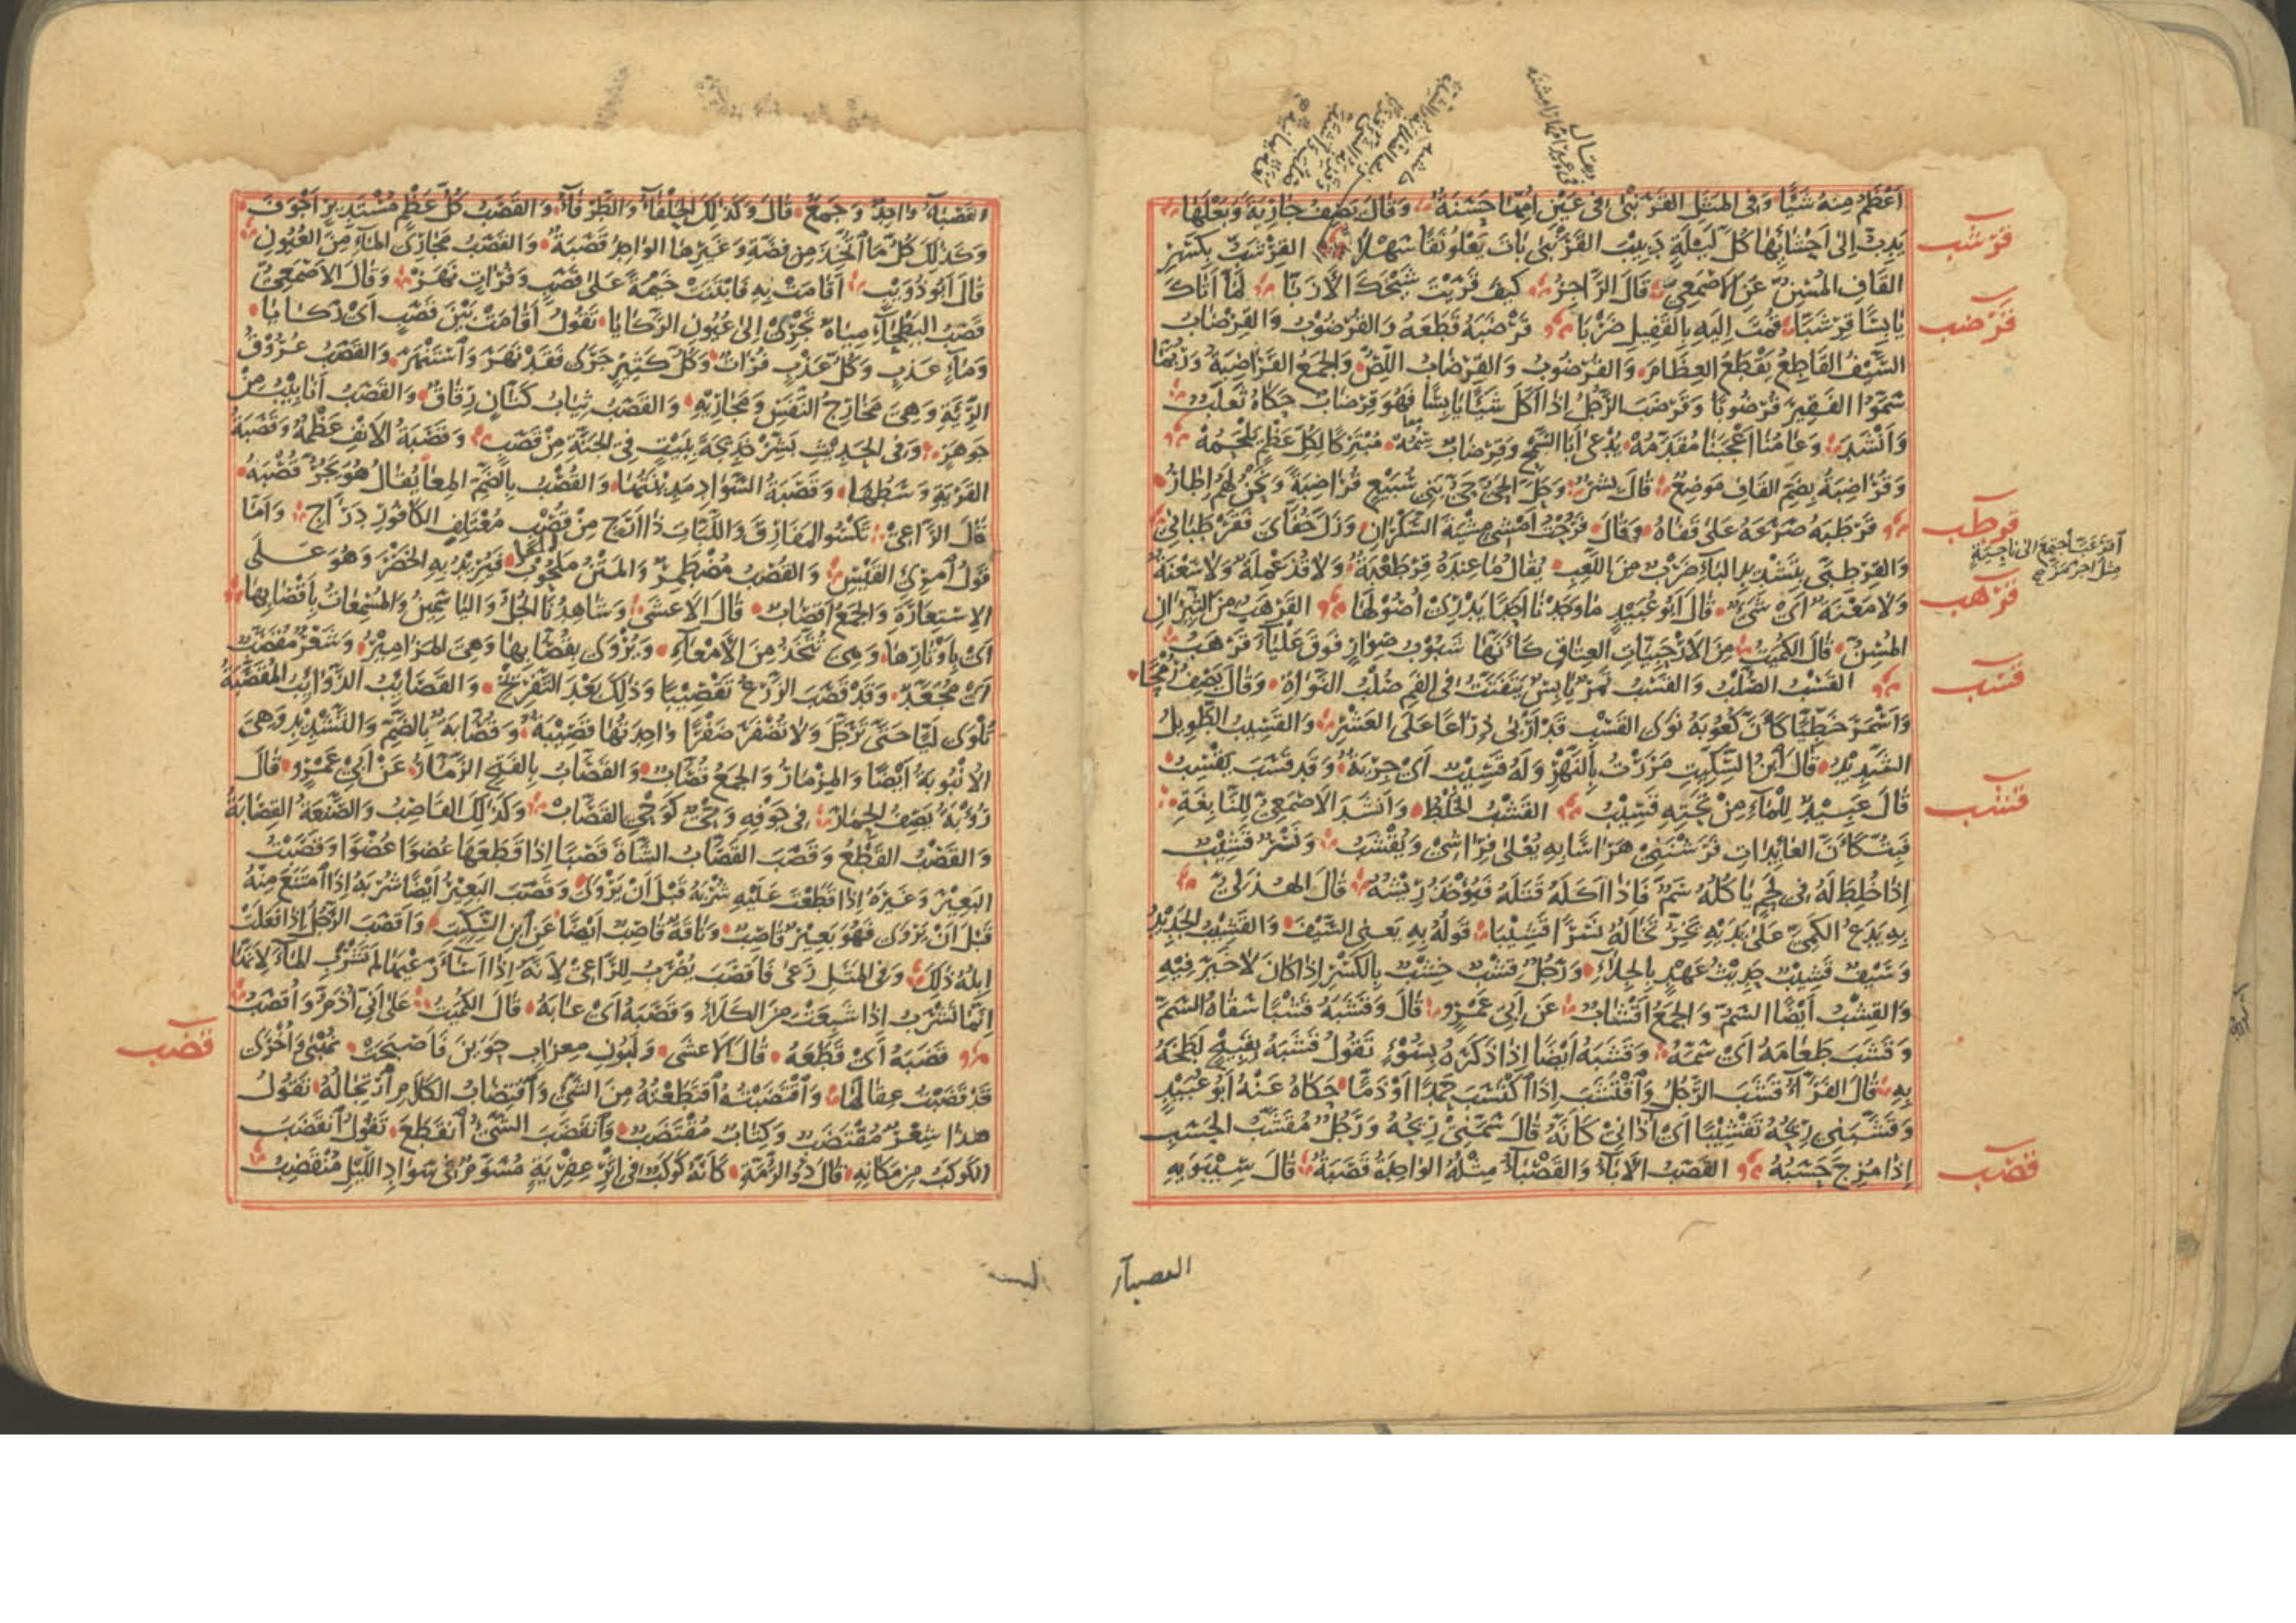 أَعْظَمُ مِنْهُ شَيْئًا وَفِى المَثَلِ القَرَنْبَى فِى عَيْنِ أُمِّهَا حَسَنَةٌ وَقَالَ يَصِفُ جَارِيَةً وَبَعْلَهَا
يَدِبُّ إِلَى أَحْشَائِهَا كُلَّ لَيْلَةٍ دَبِيبَ القَرَنْبَى بَاتَ يَعْلُو نَقًا سَهْلًا القِرْشَبُّ بِكَسْرِ
قرشب
القَافِ المُسِنُّ عَنِ الأَصْمَعِىِّ قَالَ الرَّاجِزُ كَيْفَ قَرَيْتَ شَيْخَكَ الأَزَبَّا لَمَّا أَتَاكَ
يَابِسًا قِرْشَبَّا قُمْتَ إِلَيْهِ بِالقَفِيلِ ضَرْبَا قَرْضَبَهُ قَطَعَهُ وَالقُرْضُوبُ وَالقِرْضَابُ
قرضب
السَّيْفُ القَاطِعُ يَقْطَعُ العِظَامَ وَالقُرْضُوبُ وَالقِرْضَابُ اللِّصُّ وَالجَمْعُ القَرَاضِبَةُ وَرُبَّمَا
سَمَّوُا الفَقِيرَ قُرْضُوبًا وَقَرْضَبَ الرَّجُلُ إِذَا أَكَلَ شَيْئًا يَابِسًا فَهُوَ قِرْضَابٌ حَكَاهُ ثَعْلَبٌ
وَأَنْشَدَ وَعَامُنَا أَعْجَبَنَا مُقَدَّمُهْ يُدْعَى أَبَا السَّمْحِ وَقِرْضَابٌ سُمُهْ مُبْتَرِكًا لِكُلِّ عَظْمٍ يَلْحُمُهْ
وَقُرَاضِبَةُ بِضَمِّ القَافِ مَوْضِعٌ قَالَ بِشْرٌ وَحَلَّ الحَىَّ حَىَّ بَنِى سُبَيْعٍ قُرَاضِبَةً وَنَحْنُ لَهُمْ إِطَارُ
قَرْطَبَهُ صَرَعَهُ عَلَى قَفَاهُ وَقَالَ فَرُحْتُ أَمْشِى مِشْيَةَ السَّكْرَانِ وَزَلَّ خُفَّاىَ فَقَرْطَبَانِى
قرطب
وَالقِرْطِبَّى بِتَشْدِيدِ البَاءِ ضَرْبٌ مِنَ اللَّعِبِ يُقَالُ مَا عِنْدَهُ قِرْطَعْبَةٌ وَلَا قُذَعْمِلَةٌ وَلَا سَعْنَةٌ
وَلَا مَعْنَةٌ أَىْ شَىْءٌ قَالَ أَبُو عُبَيْدٍ مَا وَجَدْنَا أَحَدًا يَدْرِى أُصُولَهَا القَرْهَبُ مِنَ الثِّيرَانِ
قرهب
المُسِنُّ قَالَ الكُمَيْتُ مِنَ الأَرْحَبِيَّاتِ العِتَاقِ كَأَنَّهَا شَبُوبُ صِوَارٍ فَوْقَ عَلْيَاءَ قَرْهَبُ
القَسْبُ الصُّلْبُ وَالقَسْبُ تَمْرٌ يَابِسٌ يَتَفَتَّتُ فِى الفَمِ صُلْبُ النَّوَاةِ وَقَالَ يَصِفُ رُمْحًا
قسب
وَأَسْمَرَ خَطِّيًّا كَأَنَّ كُعُوبَهُ نَوَى القَسْبِ قَدْ أَرْبَى ذِرَاعًا عَلَى العَشْرِ وَالقَسِيبُ الطَّوِيلُ
الشَّدِيدُ قَالَ ابْنُ السِّكِّيتِ مَرَرْتُ بِالنَّهْرِ وَلَهُ قَسِيبٌ أَىْ جِرْيَةٌ وَقَدْ قَسَبَ يَقْسِبُ
قَالَ عَبِيدٌ لِلْمَاءِ مِنْ تَحْتِهِ قَسِيبُ القَشْبُ الخَلْطُ وَأَنْشَدَ الأَصْمَعِىُّ لِلنَّابِغَةِ
قشب
فَبِتُّ كَأَنَّ العَائِدَاتِ فَرَشْنَنِى هَرَاسًا بِهِ يُعْلَى فِرَاشِى وَيُقْشَبُ وَنَسْرٌ قَشِيبٌ
إِذَا خُلِطَ لَهُ فِى لَحْمٍ يَأْكُلُهُ سَمٌّ فَإِذَا أَكَلَهُ قَتَلَهُ فَيُؤْخَذُ رِيشُهُ قَالَ الهُذَلِىُّ
بِهِ يَدَعُ الكَمِىَّ عَلَى يَدَيْهِ يَخِرُّ تَخَالُهُ نَسْرًا قَشِيبَا قَوْلُهُ بِهِ يَعْنِى السَّيْفَ وَالقَشِيبُ الجَدِيدُ
وَسَيْفٌ قَشِيبٌ حَدِيثُ عَهْدٍ بِالجِلَاءِ وَرَجُلٌ قِشْبٌ خِشْبٌ بِالكَسْرِ إِذَا كَانَ لَا خَيْرَ فِيهِ
وَالقِشْبُ أَيْضًا السَّمُّ وَالجَمْعُ أَقْشَابٌ عَنْ أَبِى عَمْرٍو قَالَ وَقَشَبَهُ قَشْبًا سَقَاهُ السَّمَّ
وَقَشَبَ طَعَامَهُ أَىْ سَمَّهُ وَقَشَبَهُ أَيْضًا إِذَا ذَكَرَهُ بِسُوءٍ تَقُولُ قَشَبَهُ بِقَبِيحٍ لَطَخَهُ
بِهِ قَالَ الفَرَّاءُ قَشَبَ الرَّجُلُ وَاقْتَشَبَ إِذَا اكْتَسَبَ حَمْدًا أَوْ ذَمًّا حَكَاهُ عَنْهُ أَبُو عُبَيْدٍ
وَقَشَّبَنِى رِيحُهُ تَقْشِيبًا أَىْ آذَانِى كَأَنَّهُ قَالَ سَمَّنِى رِيحُهُ وَرَجُلٌ مُقَشَّبُ الحَسَبِ
إِذَا مُزِجَ حَسَبُهُ القَصَبُ الأَبَاءُ وَالقَصْبَاءُ مِثْلُهُ الوَاحِدَةُ قَصَبَةٌ قَالَ سِيبَوَيْهِ
قصب
القصباء
القَصْبَاءُ وَاحِدٌ وَجَمْعٌ قَالَ وَكَذٰلِكَ الحَلْفَاءُ وَالطَّرْفَاءُ وَالقَصَبُ كُلُّ عَظْمٍ مُسْتَدِيرٍ أَجْوَفَ
وَكَذٰلِكَ كُلُّ مَا اتُّخِذَ مِنْ فِضَّةٍ وَغَيْرِهَا الوَاحِدُ قَصَبَةٌ وَالقَصَبُ مَجَارِى المَاءِ مِنَ العُيُونِ
قَالَ أَبُو ذُؤَيْبٍ أَقَامَتْ بِهِ فَابْتَنَتْ خَيْمَةً عَلَى قَصَبٍ وَفُرَاتٍ نَهَرْ وَقَالَ الأَصْمَعِىُّ
قَصَبُ البَطْحَاءِ مِيَاهٌ تَجْرِى إِلَى عُيُونِ الرَّكَايَا تَقُولُ أَقَامَتْ بَيْنَ قَصَبٍ أَىْ رَكَايَا
وَمَاءٍ عَذْبٍ وَكُلُّ عَذْبٍ فُرَاتٌ وَكُلُّ كَثِيرٍ جَرَى فَقَدْ نَهَرَ وَاسْتَنْهَرَ وَالقَصَبُ عُرُوقُ
الرِّئَةِ وَهِىَ مَخَارِجُ النَّفَسِ وَمَجَارِيهِ وَالقَصَبُ ثِيَابُ كَتَّانٍ رِقَاقٌ وَالقَصَبُ أَنَابِيبُ مِنْ
جَوْهَرٍ وَفِى الحَدِيثِ بَشِّرْ خَدِيجَةَ بِبَيْتٍ فِى الجَنَّةِ مِنْ قَصَبٍ وَقَصَبَةُ الأَنْفِ عَظْمُهُ وَقَصَبَةُ
القَرْيَةِ وَسَطُهَا وَقَصَبَةُ السَّوَادِ مَدِينَتُهَا وَالقُصْبُ بِالضَّمِّ المِعَا يُقَالُ هُوَ يَجُرُّ قُصْبَهُ
قَالَ الرَّاعِى تَكْسُو المَفَارِقَ وَاللَّبَّاتِ ذَا أَرَجٍ مِنْ قُصْبِ مُعْتَلِفِ الكَافُورِ دَرَّاجِ وَأَمَّا
قَوْلُ امْرِئِ القَيْسِ وَالقُصْبُ مُضْطَمِرٌ وَالمَتْنُ مَلْحُوبُ فَيُرِيدُ بِهِ الخَصْرَ وَهُوَ عَلَى
الاِسْتِعَارَةِ وَالجَمْعُ أَقْصَابٌ قَالَ الأَعْشَى وَشَاهِدُنَا الجُلُّ وَاليَاسَمِينُ وَالمُسْمِعَاتُ بِأَقْصَابِهَا
أَىْ بِأَوْتَارِهَا وَهِىَ تُتَّخَذُ مِنَ الأَمْعَاءِ وَيُرْوَى بِقُصَّابِهَا وَهِىَ المَزَامِيرُ وَشَعْرٌ مُقَصَّبٌ
أَىْ مُجَعَّدٌ وَقَدْ قَصَّبَ الزَّرْعُ تَقْصِيبًا وَذٰلِكَ بَعْدَ التَّفْرِيخِ وَالقَصَائِبُ الذَّوَائِبُ المُقَصَّبَةُ
تُلْوَى لَيًّا حَتَّى تَرَجَّلَ وَلَا تُضْفَرُ ضَفْرًا وَاحِدَتُهَا قَصِيبَةٌ وَقُصَّابَةٌ بِالضَّمِّ وَالتَّشْدِيدِ وَهِىَ
الأُنْبُوبَةُ أَيْضًا وَالمِزْمَارُ وَالجَمْعُ قُصَّابٌ وَالقَصَّابُ بِالفَتْحِ الزَّمَّارُ عَنْ أَبِى عَمْرٍو قَالَ
رُؤْبَةُ يَصِفُ الحِمَارَ فِى جَوْفِهِ وَحْىٌ كَوَحْىِ القَصَّابْ وَكَذٰلِكَ القَاصِبُ وَالصَّنْعَةُ القِصَابَةُ
وَالقَصْبُ القَطْعُ وَقَصَبَ القَصَّابُ الشَّاةَ قَصْبًا إِذَا قَطَعَهَا عُضْوًا عُضْوًا وَقَصَبْتُ
البَعِيرَ وَغَيْرَهُ إِذَا قَطَعْتَ عَلَيْهِ شُرْبَهُ قَبْلَ أَنْ يَرْوَى وَقَصَبَ البَعِيرُ أَيْضًا شُرْبَهُ إِذَا امْتَنَعَ مِنْهُ
قَبْلَ أَنْ يَرْوَى فَهُوَ بَعِيرٌ قَاصِبٌ وَنَاقَةٌ قَاصِبٌ أَيْضًا عَنِ ابْنِ السِّكِّيتِ وَأَقْصَبَ الرَّجُلُ إِذَا فَعَلَتْ
إِبِلُهُ ذٰلِكَ وَفِى المَثَلِ رَعَى فَأَقْصَبَ يُضْرَبُ لِلرَّاعِى لِأَنَّهُ إِذَا أَسَاءَ رَعْيَهَا لَمْ تَشْرَبِ المَاءَ لِأَنَّهَا
إِنَّمَا تَشْرَبُ إِذَا شَبِعَتْ مِنَ الكَلَإِ وَقَصَبَهُ أَىْ عَابَهُ قَالَ الكُمَيْتُ عَلَى أَنِّى أُذَمُّ وَأُقْصَبُ
قَضَبَهُ أَىْ قَطَعَهُ قَالَ الأَعْشَى وَلَبُونِ مِعْزَابٍ حَوَيْتَ فَأَصْبَحَتْ نُهْبَى وَأُخْرَى
قضب
قَدْ قَضَبْتَ عِقَالَهَا وَاقْتَضَبْتُهُ اقْتَطَعْتُهُ مِنَ الشَّىْءِ وَاقْتِضَابُ الكَلَامِ ارْتِجَالُهُ تَقُولُ
هٰذَا شِعْرٌ مُقْتَضَبٌ وَكِتَابٌ مُقْتَضَبٌ وَانْقَضَبَ الشَّىْءُ انْقَطَعَ تَقُولُ انْقَضَبَ
الكَوْكَبُ مِنْ مَكَانِهِ قَالَ ذُو الرُّمَّةِ كَأَنَّهُ كَوْكَبٌ فِى إِثْرِ عِفْرِيَةٍ مُسَوَّمٌ فِى سَوَادِ اللَّيْلِ مُنْقَضِبُ